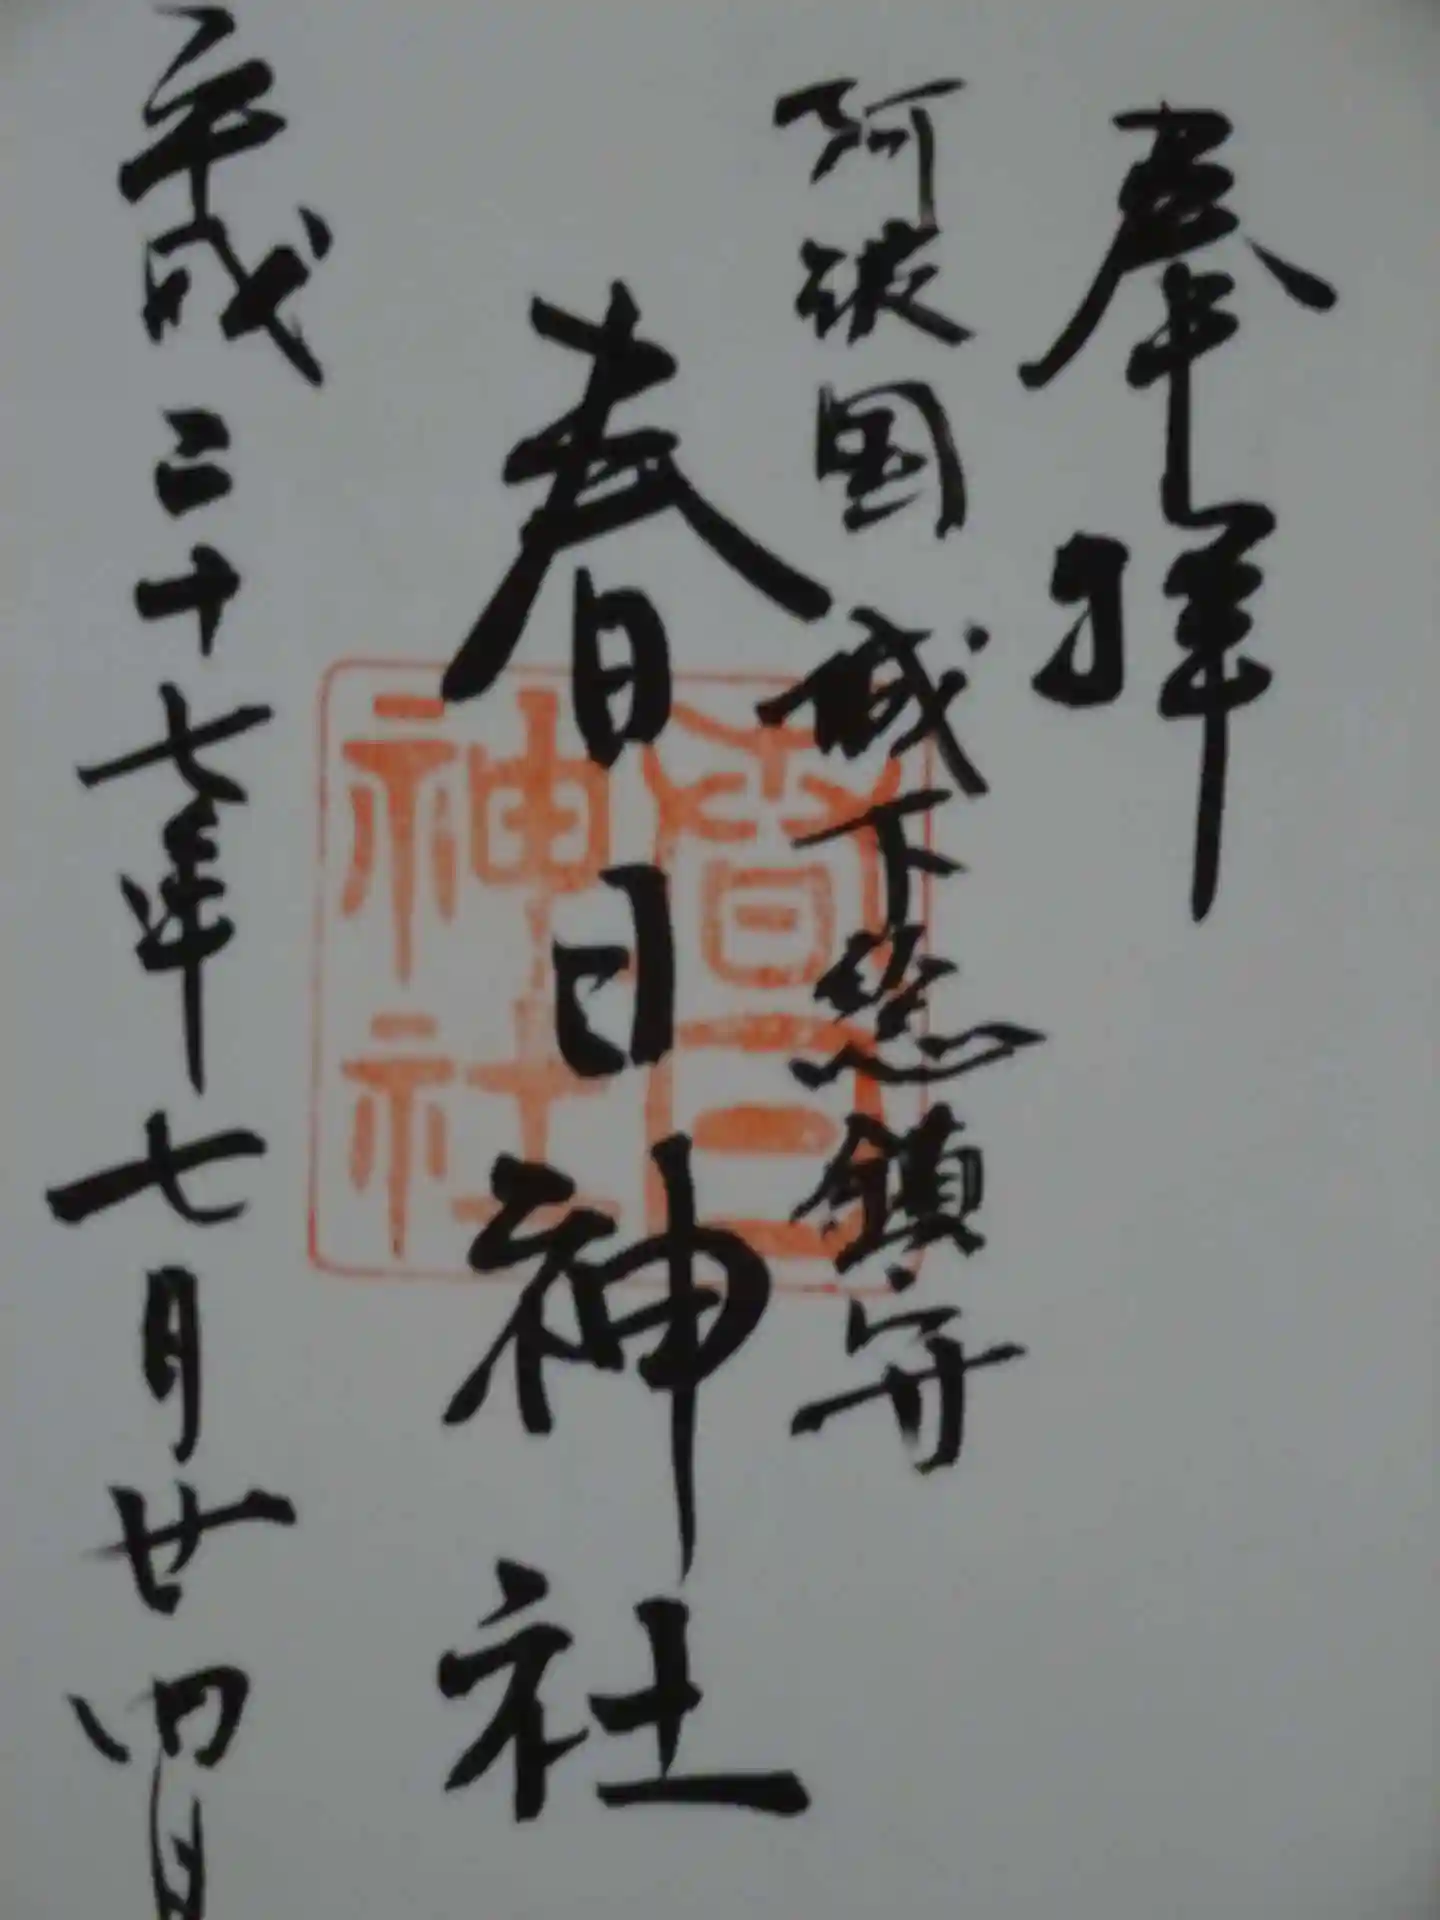 奉拝
阿波国 城下総鎮守
春日神社
春日神社
平成二十七年七月廿四日